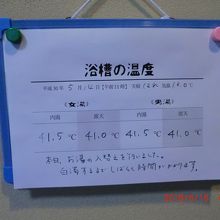 浴槽の温度
平成30年 5月14日【午前11時】 天候 はれ 気温 16.0℃
《女湯》 《男湯》
内湯 露天 内湯 露天
41.5℃ 41.0℃ 41.5℃ 41.0℃
本日、お湯の入替えを行いました。
白濁するまでしばらく時間がかかります。